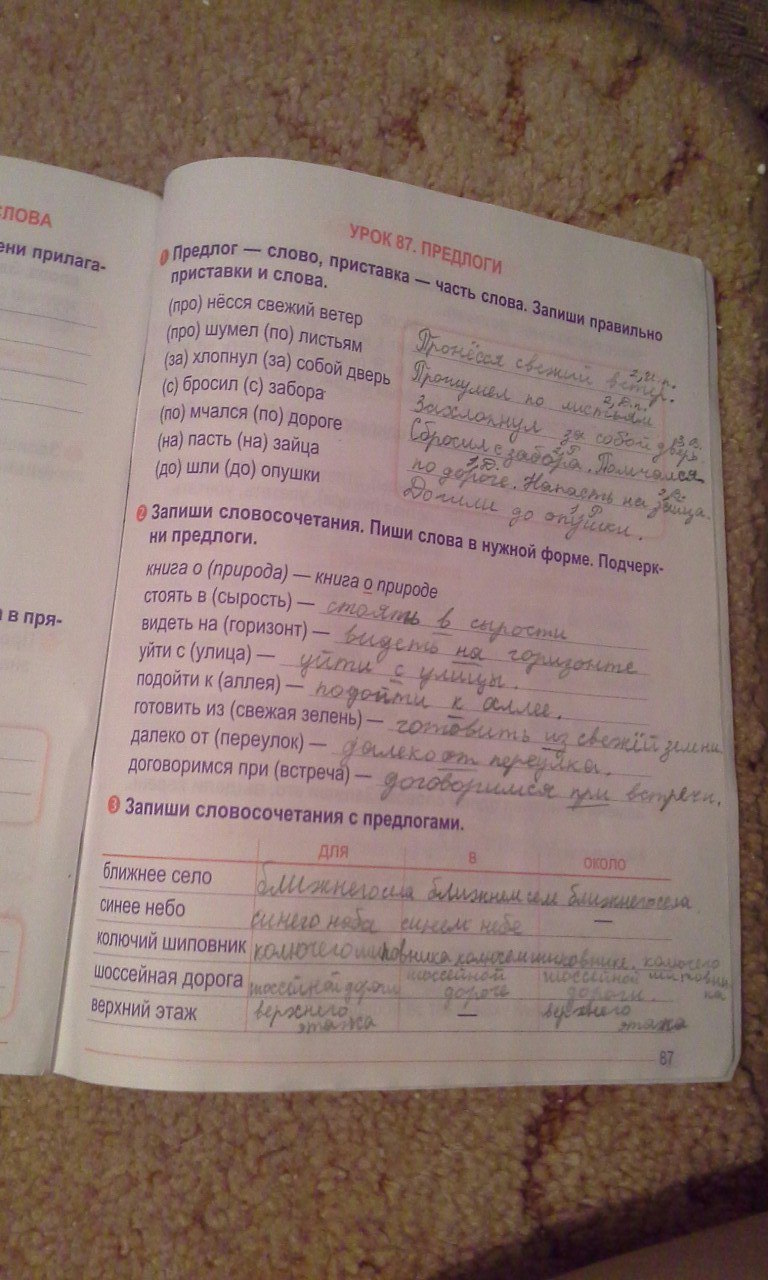 СЛОВА
ени прилага-
а в пря-
УРОК 87. ПРЕДЛОГИ
1 Предлог — слово, приставка — часть слова. Запиши правильно
приставки и слова.
(про) нёсся свежий ветер
(про) шумел (по) листьям
(за) хлопнул (за) собой дверь
(с) бросил (с) забора
(по) мчался (по) дороге
(на) пасть (на) зайца
(до) шли (до) опушки
Пронёсся свежий ветер.
2, И. п.
Прошумел по листьям
2, Д. п.
Захлопнул за собой дверь.
Сбросил с забора. Помчался
по дороге. Напасть на зайца.
Дошли до опушки.
2 Запиши словосочетания. Пиши слова в нужной форме. Подчерк-
ни предлоги.
книга о (природа) — книга о природе
стоять в (сырость) — стоять в сырости
видеть на (горизонт) — видеть на горизонте
уйти с (улица) — уйти с улицы.
подойти к (аллея) — подойти к аллее.
готовить из (свежая зелень) — готовить из свежей
далеко от (переулок) — далеко от переулка.
договоримся при (встреча) — договоримся при встрече.
3 Запиши словосочетания с предлогами.
ДЛЯ В ОКОЛО
ближнее село ближнего села ближнем селе ближнего села
синее небо синего неба синем небе —
колючий шиповник колючего шиповника колючем шиповнике. колючего шиповника
шоссейная дорога шоссейной дороги шоссейной дороге шоссейной дороги.
верхний этаж верхнего этажа — верхнего этажа
87